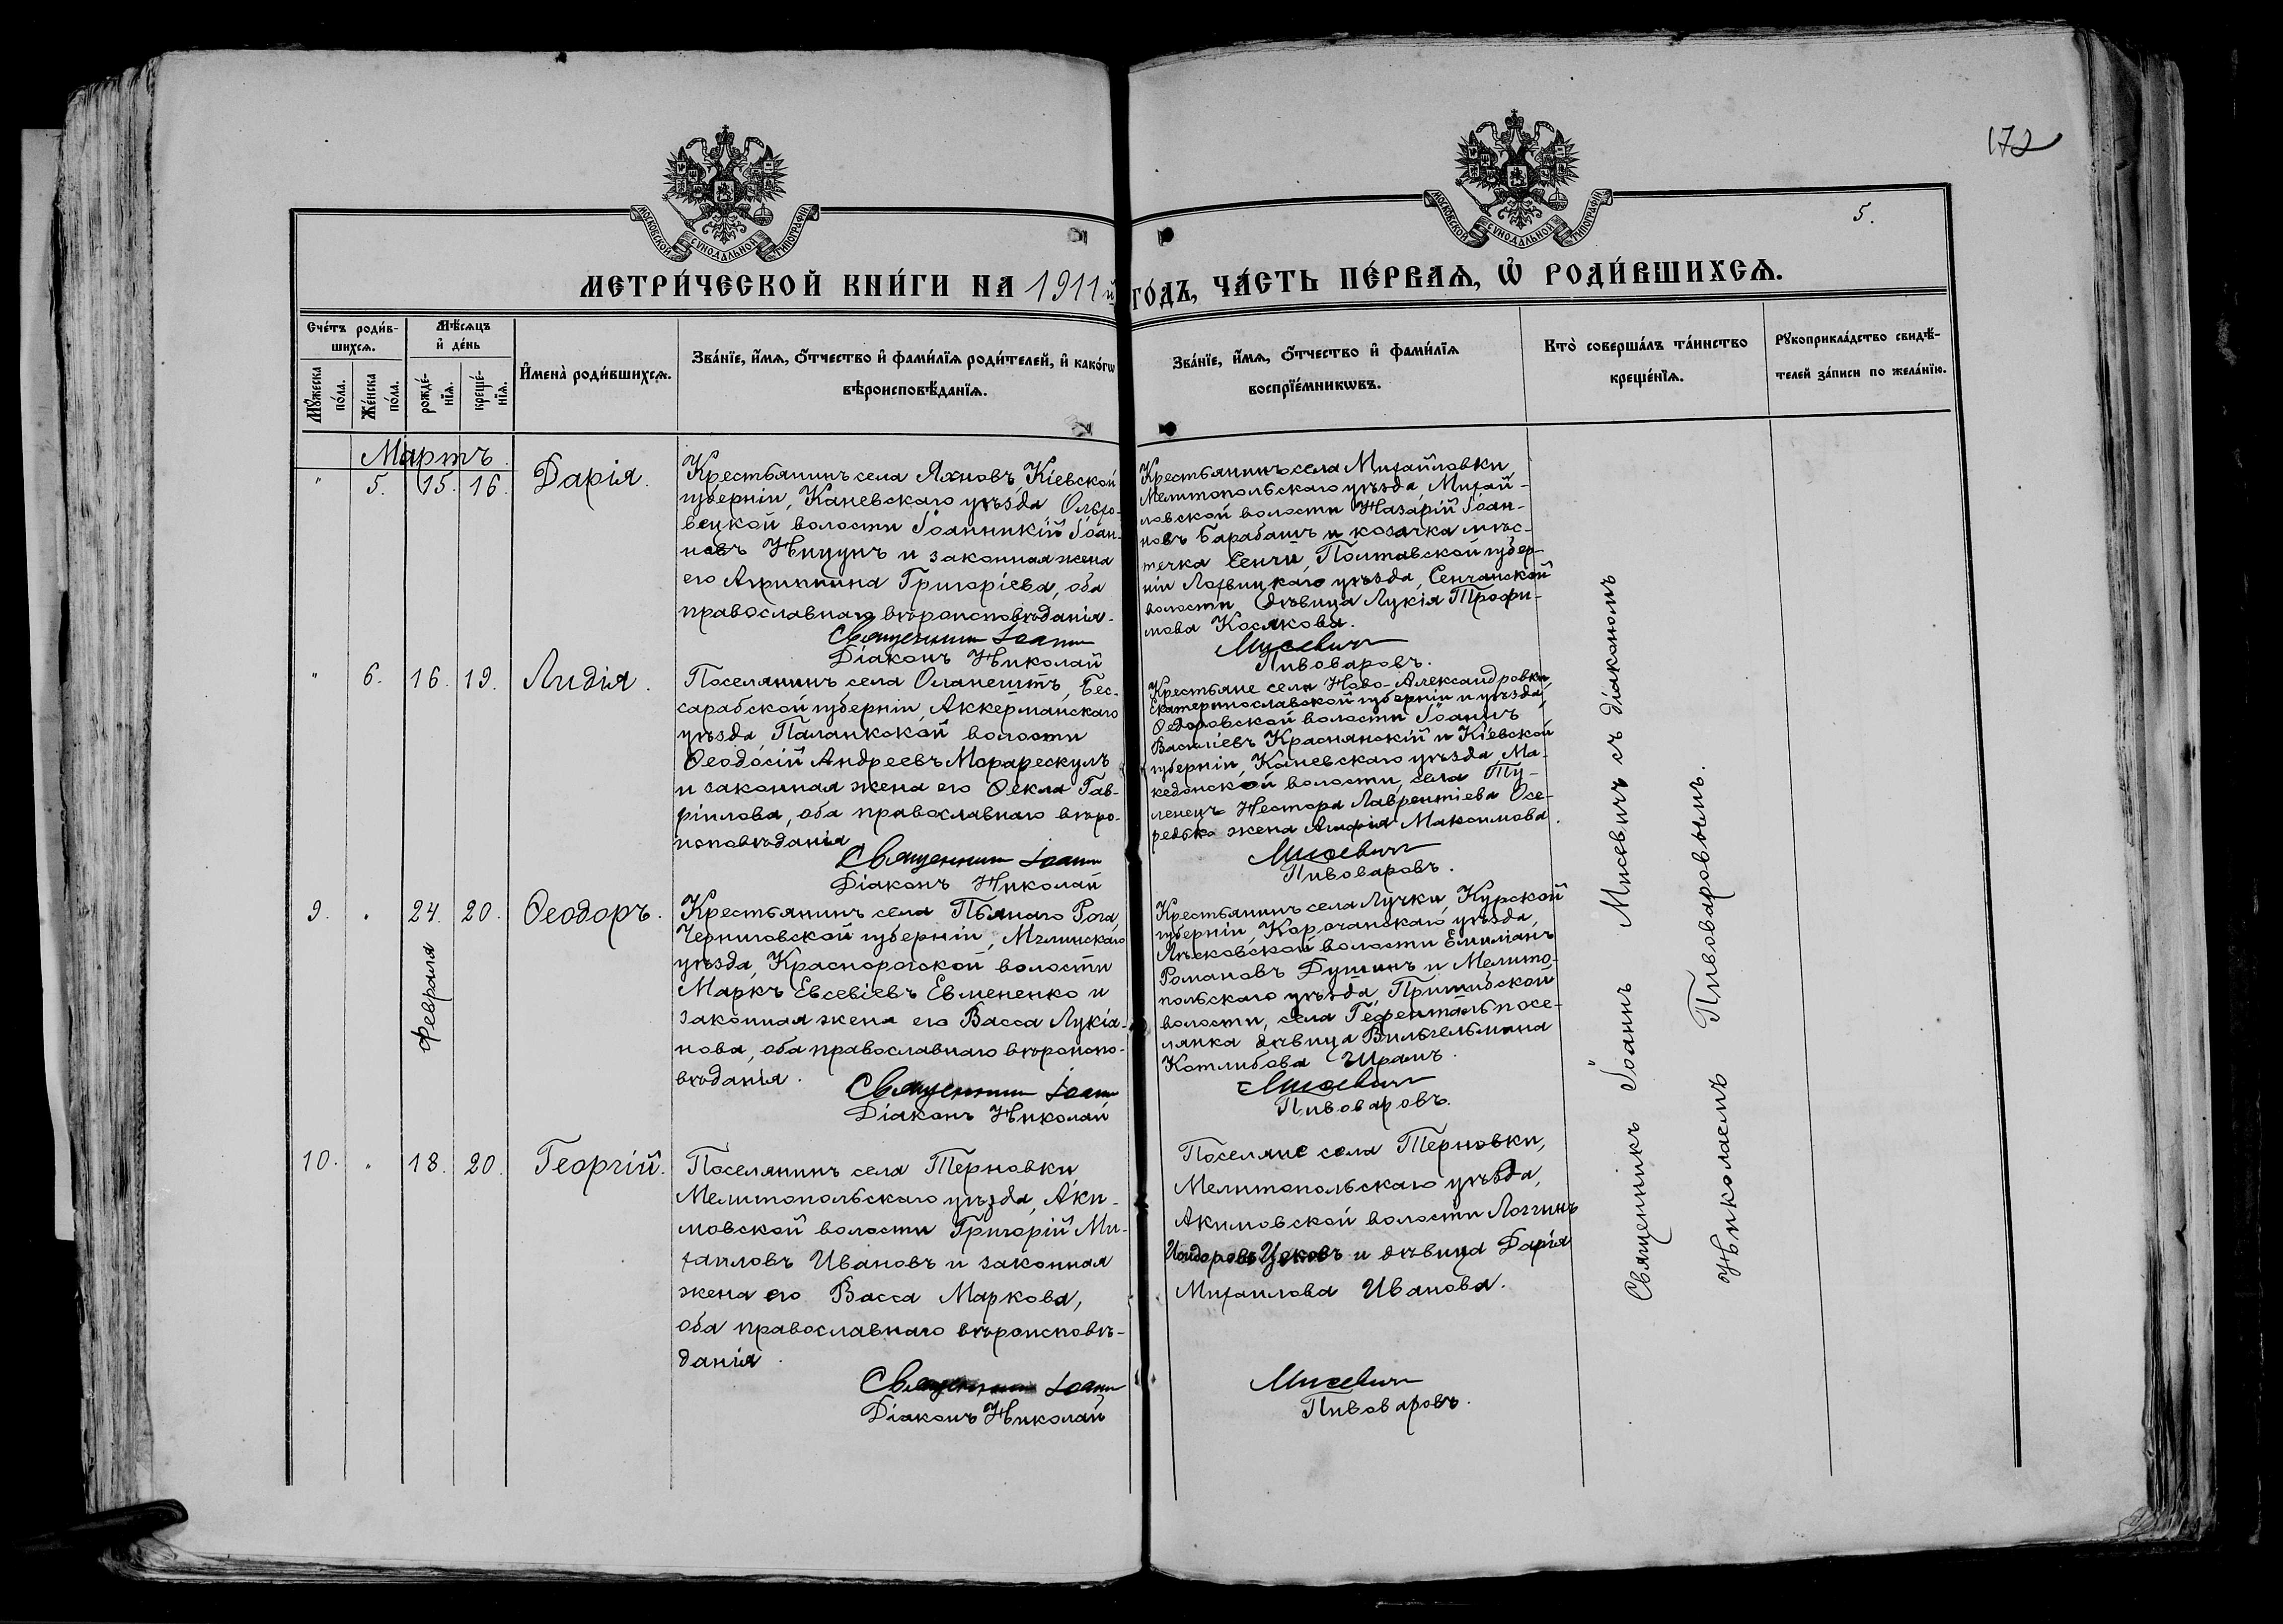 172
5.
МОСКОВСКОЙ СУНОДАЛЬНОЙ ТИПОГРАФІИ
МОСКОВСКОЙ СУНОДАЛЬНОЙ ТИПОГРАФІИ
МЕТРИ́ЧЕСКОЙ КНИ́ГИ НА 1911й ГО́ДЪ, ЧА́СТЬ ПЕ́РВАѦ, Ѽ РОДИ́ВШИХСѦ.
Сче́тъ роди́в-
шихсѧ.
Мꙋ́жеска по́ла.
Же́нска по́ла.
Мѣ́сѧцъ
и҆ де́нь
рожде́-нїѧ.
креще́-нїѧ.
И҆мена̀ роди́вшихсѧ.
Зва́нїе, и҆́мѧ, ѻ҆́тчество и҆ фами́лїѧ роди́телей, и҆ како́гѡ
вѣроисповѣ́данїѧ.
Зва́нїе, и҆́мѧ, ѻ҆́тчество и҆ фами́лїѧ
воспрїе́мникѡвъ.
Кто̀ соверша́лъ та́инство
креще́нїѧ.
Рꙋкоприкла́дство свидѣ́-
телей за́писи по жела́нїю.
Мартъ
" 5. 15. 16. Дарія.
Крестьянинъ села Яхновъ, Кіевской
губерніи, Каневскаго уѣзда Ольхо-
вецкой волости Іоанникій Іоан-
новъ Ницунъ и законная жена
его Агриппина Григоріева, оба
православнаго вѣроисповѣданія.
Священникъ Іоаннъ
Діаконъ Николай
Крестьянинъ села Михайловки,
Мелитопольскаго уѣзда, Михай-
ловской волости Назарій Іоан-
новъ Барабашъ и козачка мѣс-
течка Сенчи, Полтавской губер-
ніи Лохвицкаго уѣзда, Сенчанской
волости дѣвица Лукія Трофи-
мова Косякова.
Мисевичъ
Пивоваровъ.
" 6. 16. 19. Лидія.
Поселянинъ села Оланештъ, Бес-
сарабской губерніи, Аккерманскаго
уѣзда, Паланкской волости
Ѳеодосій Андреевъ Морарескулъ
и законная жена его Ѳекла Гав-
ріилова, оба православнаго вѣро-
исповѣданія
Священникъ Іоаннъ
Діаконъ Николай
Крестьяне села Ново-Александровки,
Екатеринославской губерніи и уѣзда,
Ѳедоровской волости Іоаннъ
Василіевъ Краснянскій и Кіевской
губерніи, Каневскаго уѣзда, Ма-
кедонской волости, села Ту-
ленецъ Нестора Лаврентіева Осе-
редько жена Агафія Максимова.
Мисевичъ
Пивоваровъ.
9. " 24. 20. Ѳеодоръ.
Февраля
Крестьянинъ села Пьянаго Рога,
Черниговской губерніи, Мглинскаго
уѣзда, Краснорогской волости
Маркъ Евсевіевъ Евмененко и
законная жена его Васса Лукіа-
нова, оба православнаго вѣроиспо-
вѣданія.
Священникъ Іоаннъ
Діаконъ Николай
Крестьянинъ села Лучки, Курской
губерніи, Корочанскаго уѣзда,
Лѣсковской волости Емиліанъ
Романовъ Душинъ и Мелито-
польскаго уѣзда, Пришибской
волости, села Гефенталь посе-
лянка дѣвица Вильгельмина
Котлибова Шрамъ.
Мисевичъ
Пивоваровъ.
10. " 18. 20. Георгій.
Поселянинъ села Терновки,
Мелитопольскаго уѣзда, Аки-
мовской волости Григорій Ми-
хаиловъ Ивановъ и законная
жена его Васса Маркова,
оба православнаго вѣроисповѣ-
данія.
Священникъ Іоаннъ
Діаконъ Николай
Поселяне села Терновки,
Мелитопольскаго уѣзда,
Акимовской волости Логгинъ
Исидоровъ Цековъ и дѣвица Дарія
Михаилова Иванова.
Мисевичъ
Пивоваровъ.
Священникъ Іоаннъ Мисевичъ съ діакономъ
Николаемъ Пивоваровымъ.